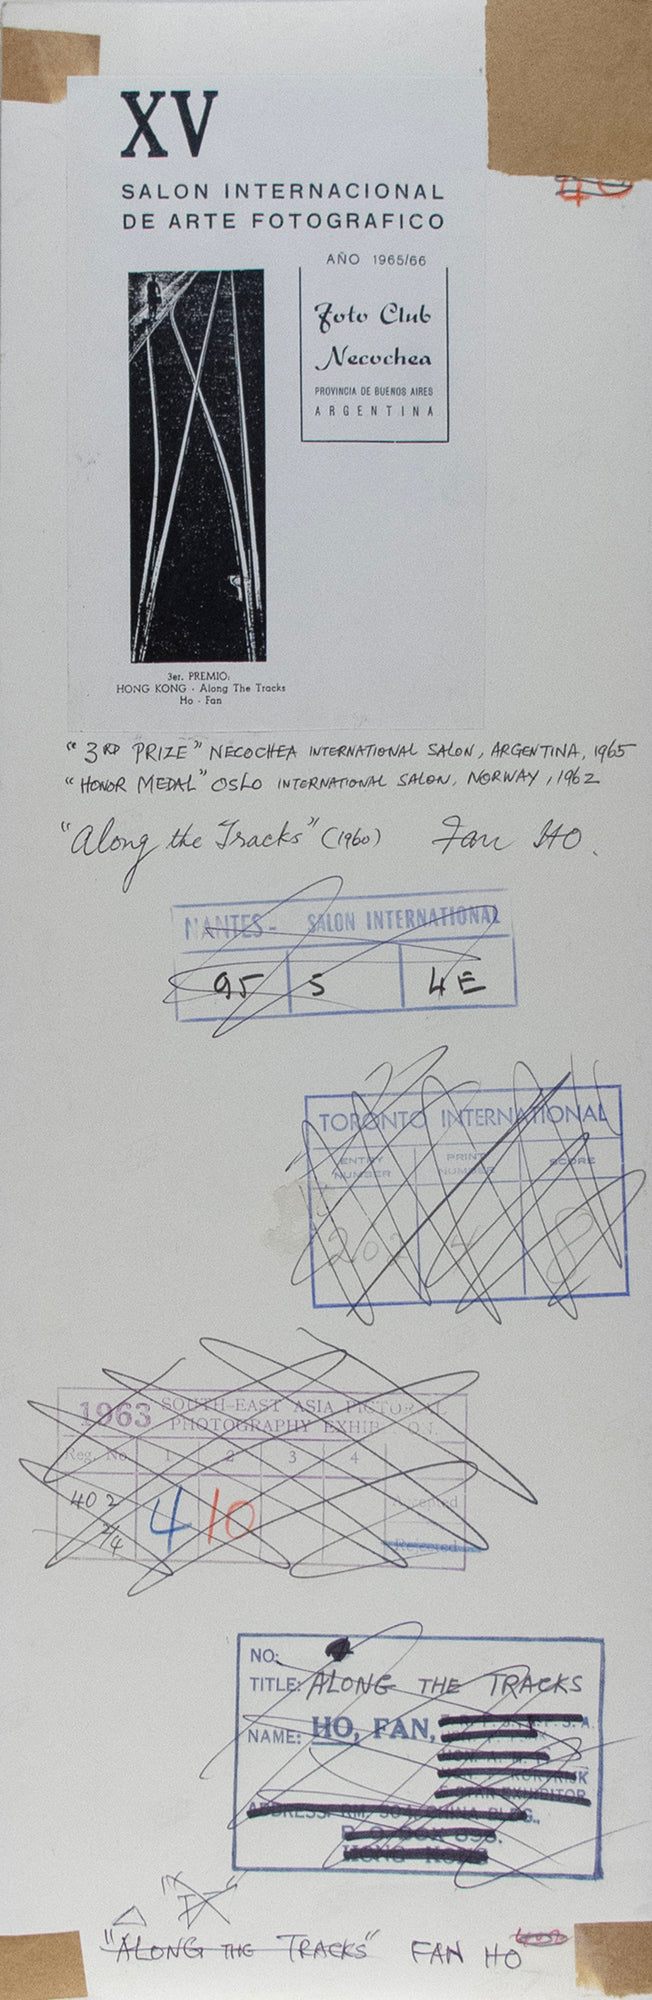 XV
SALON INTERNACIONAL
DE ARTE FOTOGRAFICO
AÑO 1965/66
Foto Club
Necochea
PROVINCIA DE BUENOS AIRES
ARGENTINA
3er. PREMIO:
HONG KONG - Along The Tracks
Ho - Fan
"3RD PRIZE" NECOCHEA INTERNATIONAL SALON, ARGENTINA, 1965
"HONOR MEDAL" OSLO INTERNATIONAL SALON, NORWAY, 1962
"Along the Tracks" (1960) Fan HO.
NANTES - SALON INTERNATIONAL
95 5 4E
TORONTO INTERNATIONAL
ENTRY NUMBER PRINT NUMBER SCORE
202 4 8
1963 SOUTH-EAST ASIA PICTORIAL
PHOTOGRAPHY EXHIBITION.
Reg. No. 1 2 3 4
402 4 10 Accepted
2/4 Rejected
NO:
TITLE: ALONG THE TRACKS
NAME: HO, FAN,
EXHIBITOR
ADDRESS: RM. 304, CHINA BLDG.,
P. O. BOX
HONG KONG
"ALONG THE TRACKS" FAN HO